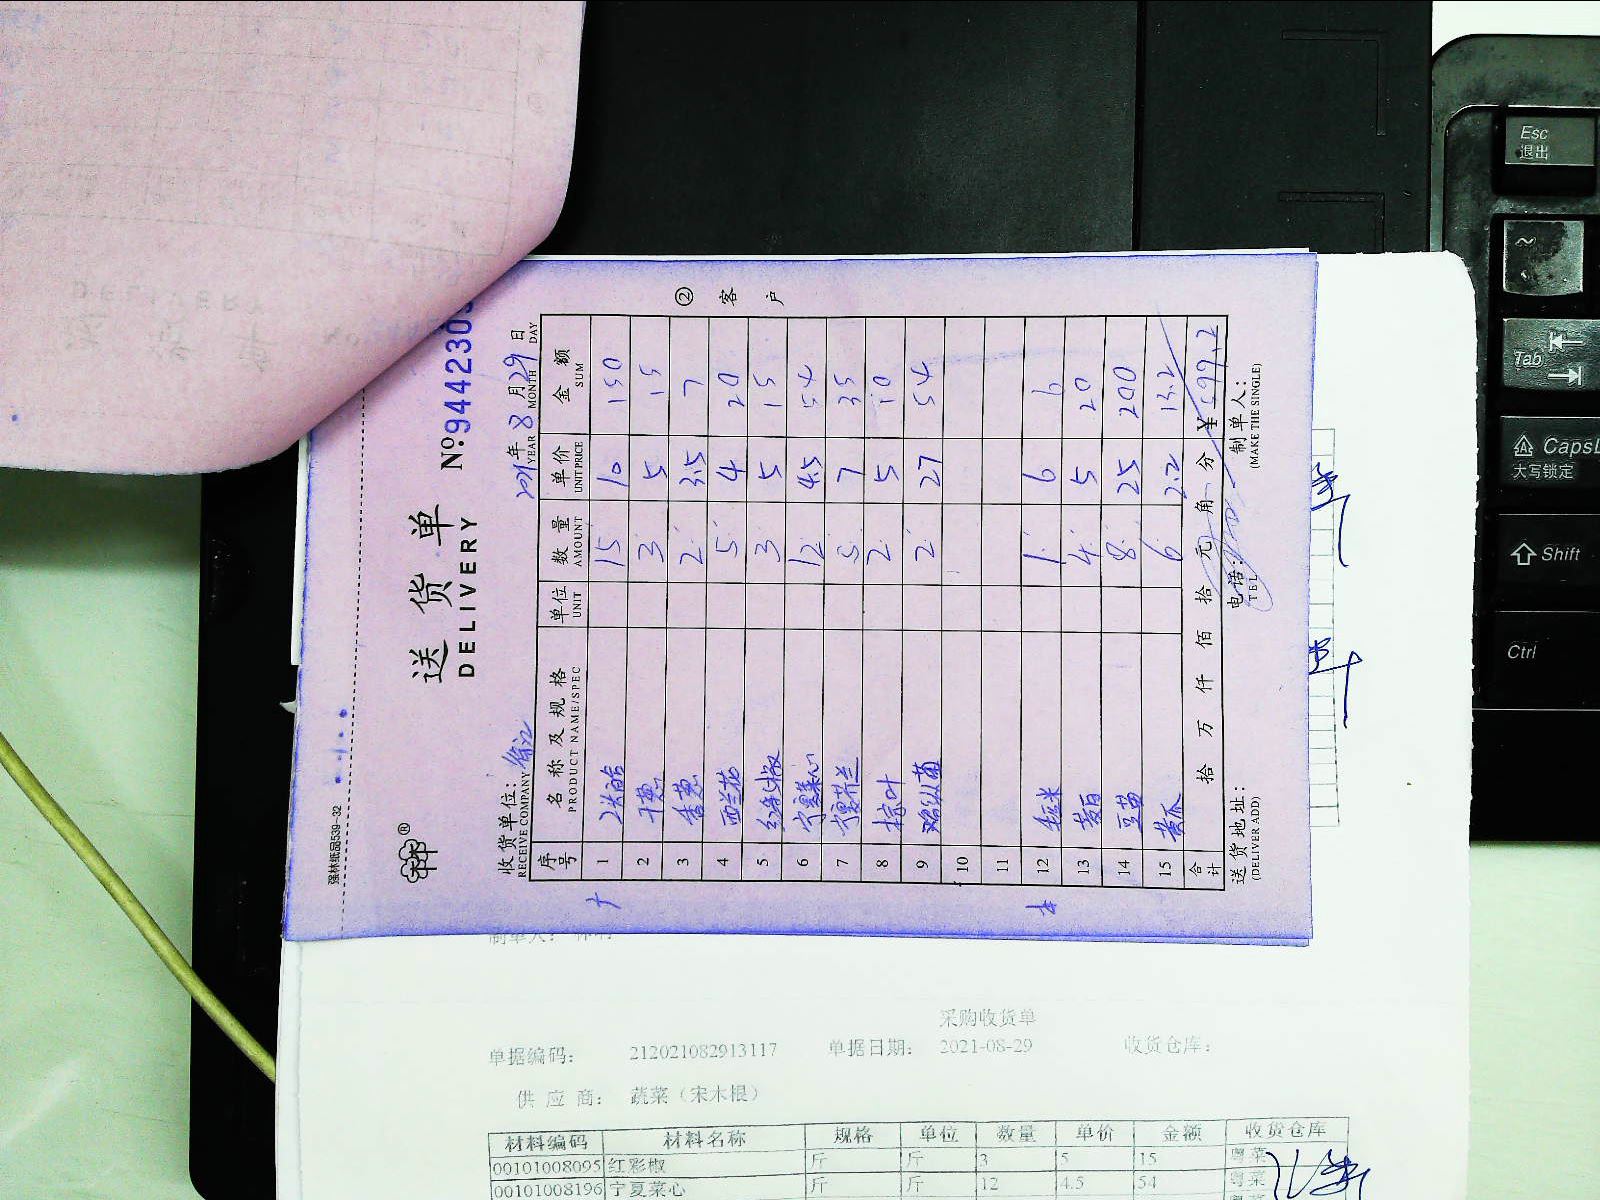 强林纸品539-32
送货单
DELIVERY
No. 9442305
收货单位：
RECEIVE COMPANY
2021年 8月 29日
YEAR MONTH DAY
序号 名称及规格 单位 数量 单价 金额
PRODUCT NAME/SPEC UNIT AMOUNT UNIT PRICE SUM
1 15 10 150
2 干葱 3 5 15
3 香葱 2 3.5 7
4 西兰花 5 4 20
5 红彩椒 3 5 15
6 宁夏菜心 12 4.5 54
7 宁夏芥兰 5 7 35
8 粽叶 2 5 10
9 鸡纵菌 2 27 54
10
11
12 玉米 1 6 6
13 葱白 4 5 20
14 豆苗 8 25 200
15 黄瓜 6 2.2 13.2
合计 拾 万 仟 佰 拾 元 角 分 ¥599.2
送货地址： 电话： 制单人：
(DELIVER ADD) TEL (MAKE THE SINGLE)
② 客户
制单人：
采购收货单
单据编码： 212021082913117 单据日期： 2021-08-29 收货仓库：
供应商： 蔬菜（宋木根）
材料编码 材料名称 规格 单位 数量 单价 金额 收货仓库
00101008095 红彩椒 斤 斤 3 5 15 粤菜
00101008196 宁夏菜心 斤 斤 12 4.5 54 粤菜
Esc
退出
~
Tab
CapsL
大写锁定
Shift
Ctrl